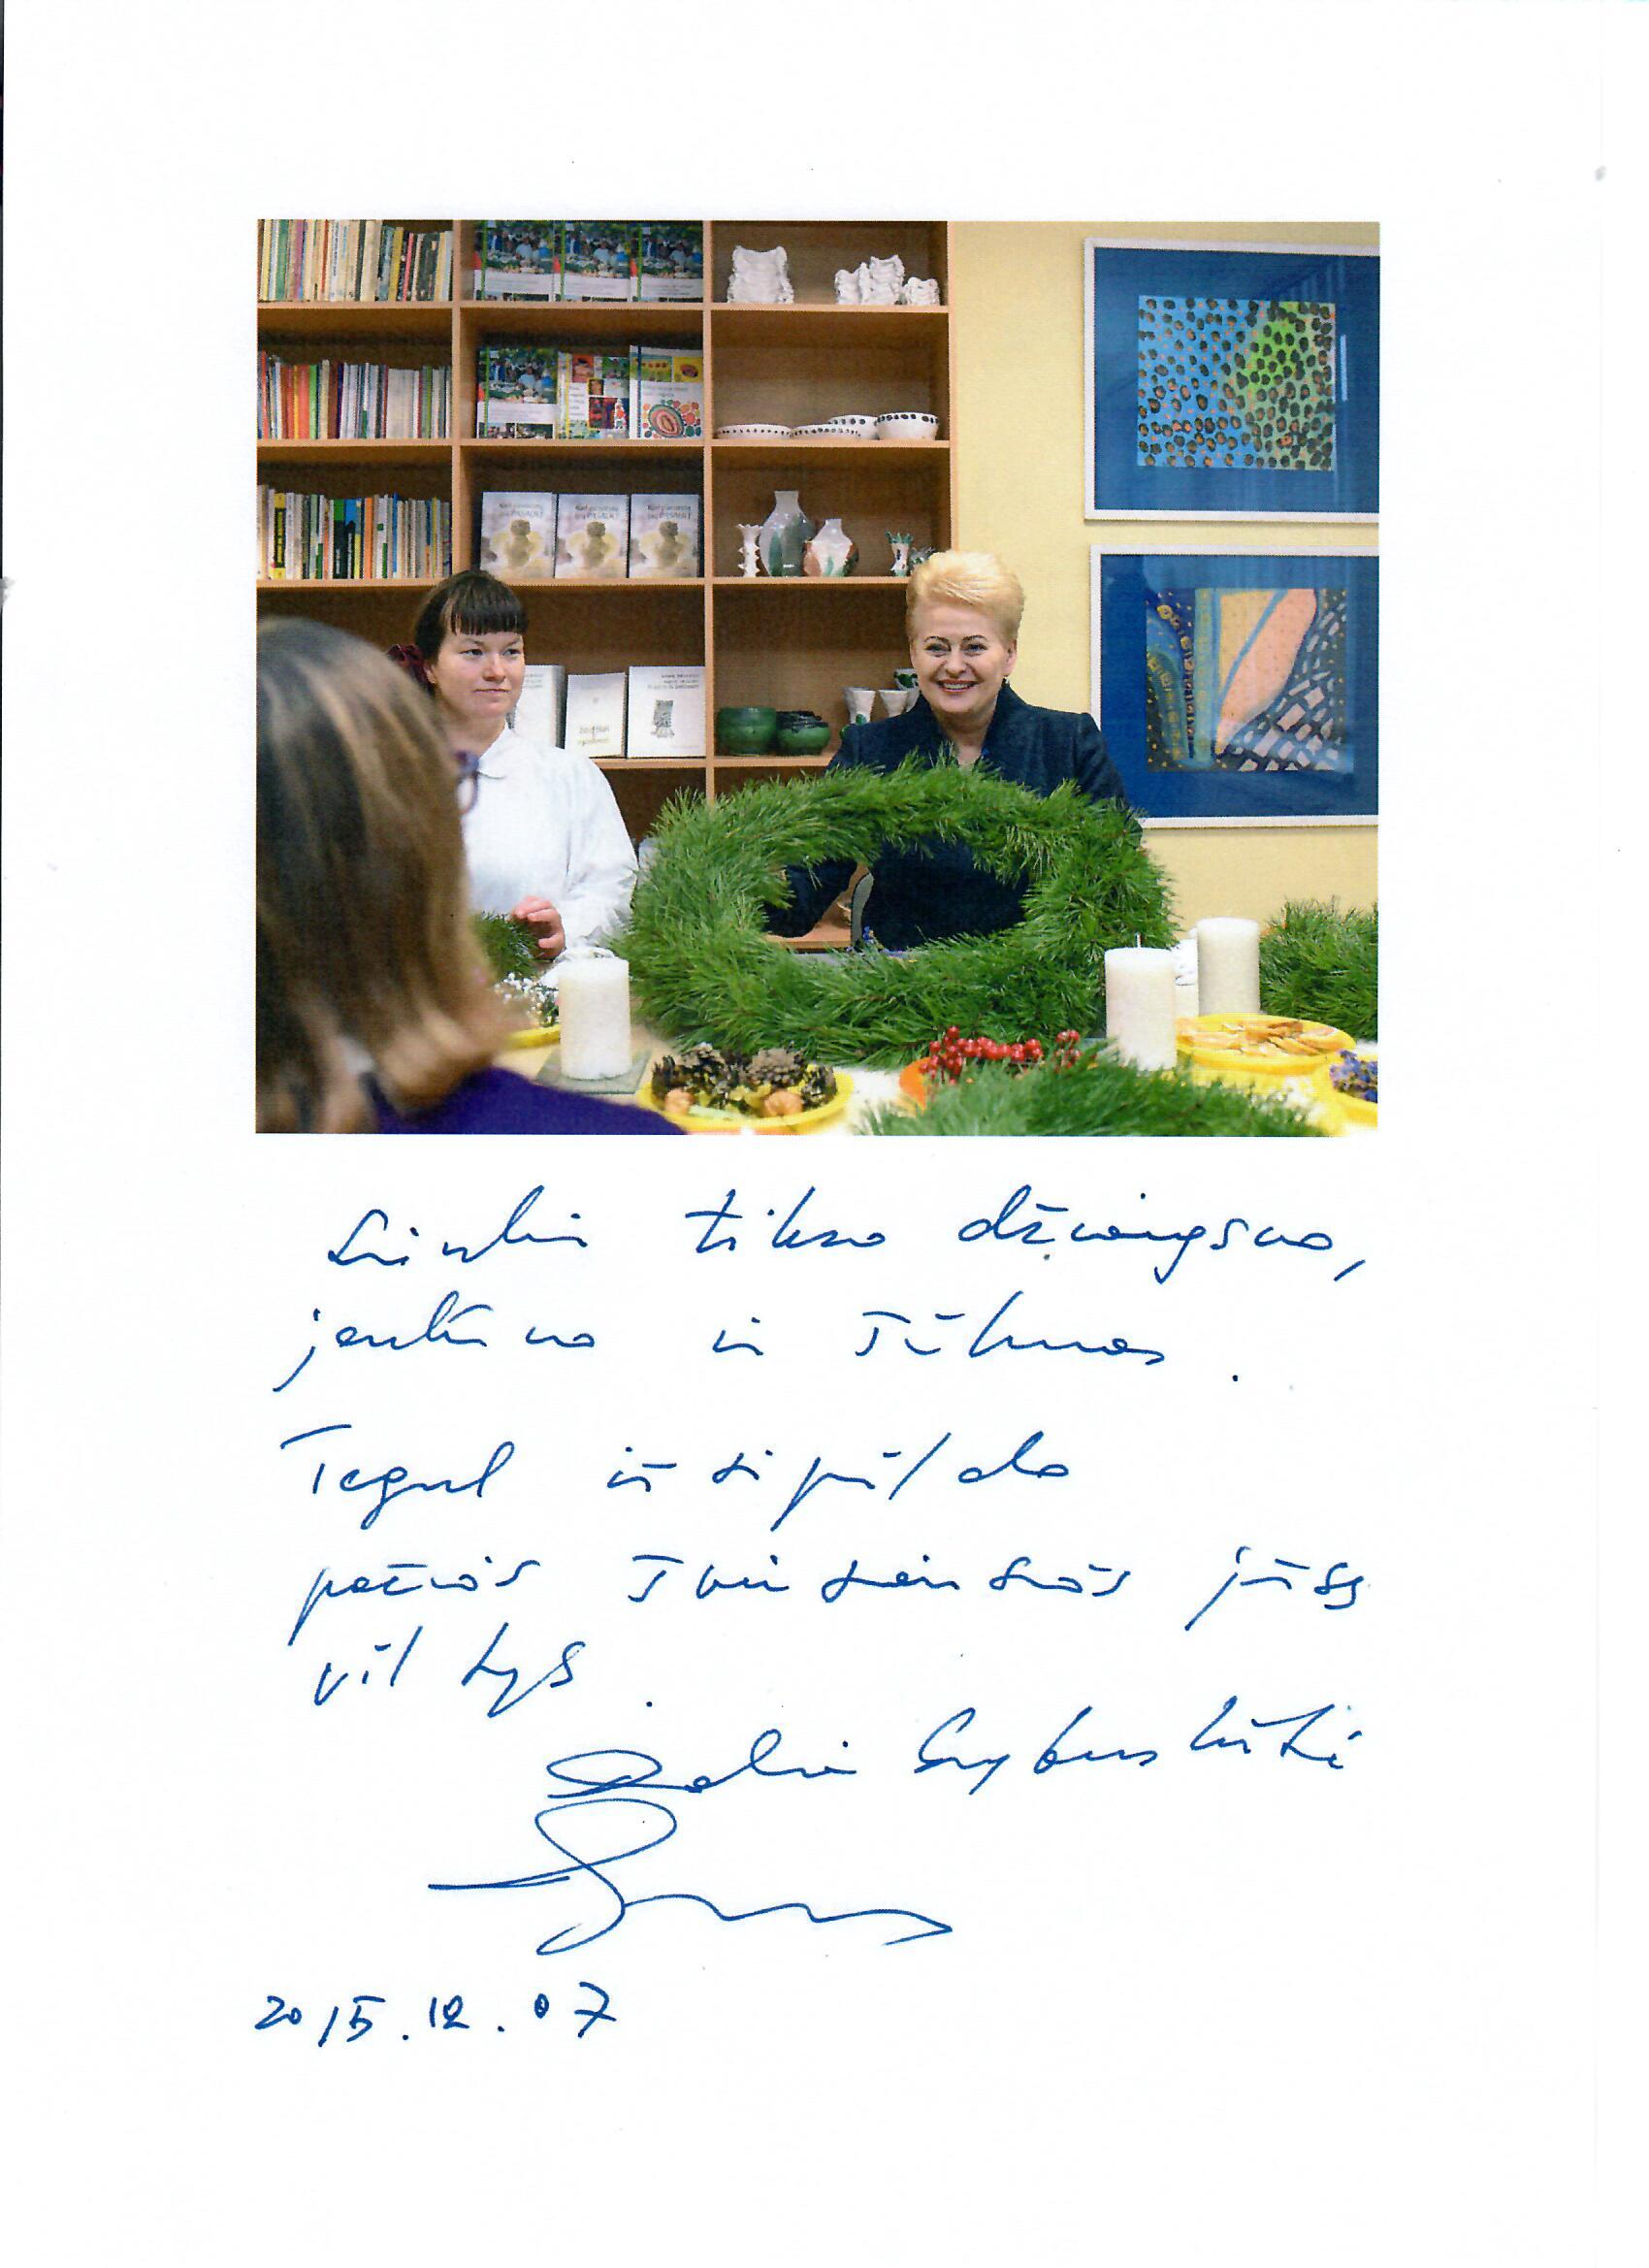 Linkiu tikro džiaugsmo,
jaukumo ir šilumos.
Tegul išsipildo
pačios šviesiausios jūsų
viltys.
Dalia Grybauskaitė
2015.12.07